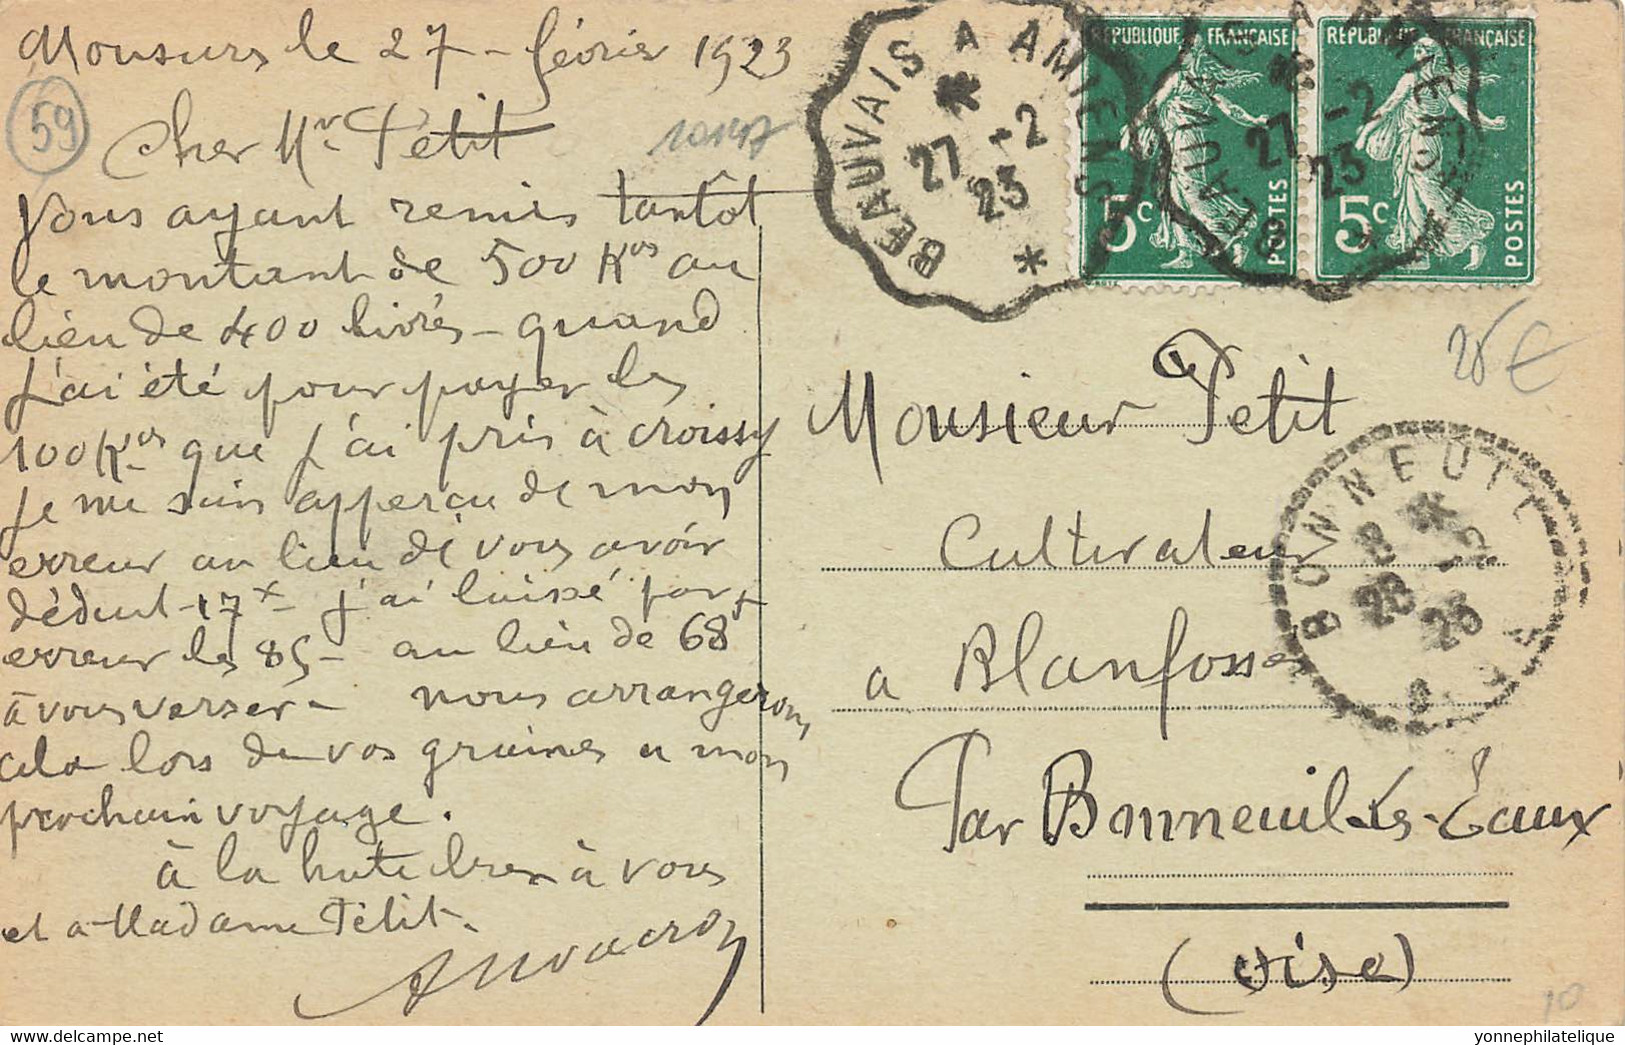 Monsures le 27 - février 1923
59
Cher Mr Petit
10147
Vous ayant remis tantôt
le montant de 500 Kos au
lieu de 400 livrés - quand
j'ai été pour payer les
100 Kos que j'ai pris à Croissy
je me suis apperçu de mon
erreur au lieu de vous avoir
déduit 17x j'ai laissé par
erreur les 85 - au lieu de 68x
à vous verser - nous arrangerons
cela lors de vos graines a mon
prochain voyage.
à la hate bien à vous
et a Madame Petit.
BEAUVAIS A AMIENS
27 -2
23
BEAUVAIS A AMIENS
27 -2
23
REPUBLIQUE FRANÇAISE
5c
POSTES
REPUBLIQUE FRANÇAISE
5c
POSTES
25€
Monsieur Petit
Cultivateur
a Blanfosse
Par Bonneuil Les-Eaux
(Oise)
BONNEUIL
10
yonnephilatelique